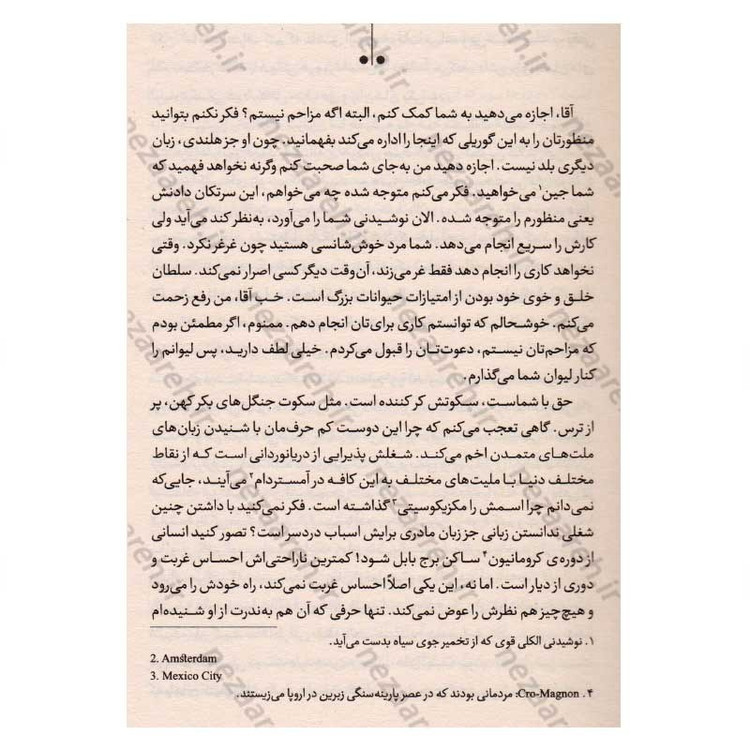 آقا، اجازه می‌دهید به شما کمک کنم، البته اگه مزاحم نیستم؟ فکر نکنم بتوانید
منظورتان را به این گوریلی که اینجا را اداره می‌کند بفهمانید. چون او جز هلندی، زبان
دیگری بلد نیست. اجازه دهید من به‌جای شما صحبت کنم وگرنه نخواهد فهمید که
شما جین۱ می‌خواهید. فکر می‌کنم متوجه شده چه می‌خواهم، این سرتکان دادنش
یعنی منظورم را متوجه شده. الان نوشیدنی شما را می‌آورد، به‌نظر کند می‌آید ولی
کارش را سریع انجام می‌دهد. شما مرد خوش‌شانسی هستید چون غرغر نکرد. وقتی
نخواهد کاری را انجام دهد فقط غر می‌زند، آن‌وقت دیگر کسی اصرار نمی‌کند. سلطان
خلق و خوی خود بودن از امتیازات حیوانات بزرگ است. خب آقا، من رفع زحمت
می‌کنم. خوشحالم که توانستم کاری برای‌تان انجام دهم. ممنوم، اگر مطمئن بودم
که مزاحم‌تان نیستم، دعوت‌تان را قبول می‌کردم. خیلی لطف دارید، پس لیوانم را
کنار لیوان شما می‌گذارم.
حق با شماست، سکوتش کر کننده است. مثل سکوت جنگل‌های بکر کهن، پر
از ترس. گاهی تعجب می‌کنم که چرا این دوست کم حرف‌مان با شنیدن زبان‌های
ملت‌های متمدن اخم می‌کند. شغلش پذیرایی از دریانوردانی است که از نقاط
مختلف دنیا با ملیت‌های مختلف به این کافه در آمستردام۲ می‌آیند، جایی‌که
نمی‌دانم چرا اسمش را مکزیکوسیتی۳ گذاشته است. فکر نمی‌کنید با داشتن چنین
شغلی ندانستن زبانی جز زبان مادری برایش اسباب دردسر است؟ تصور کنید انسانی
از دوره‌ی کرومانیون۴ ساکن برج بابل شود! کمترین ناراحتی‌اش احساس غربت و
دوری از دیار است. اما نه، این یکی اصلاً احساس غربت نمی‌کند، راه خودش را می‌رود
و هیچ‌چیز هم نظرش را عوض نمی‌کند. تنها حرفی که آن هم به‌ندرت از او شنیده‌ام
۱. نوشیدنی الکلی قوی که از تخمیر جوی سیاه بدست می‌آید.
2. Amsterdam
3. Mexico City
۴. Cro-Magnon: مردمانی بودند که در عصر پارینه‌سنگی زبرین در اروپا می‌زیستند.
nezaareh.ir